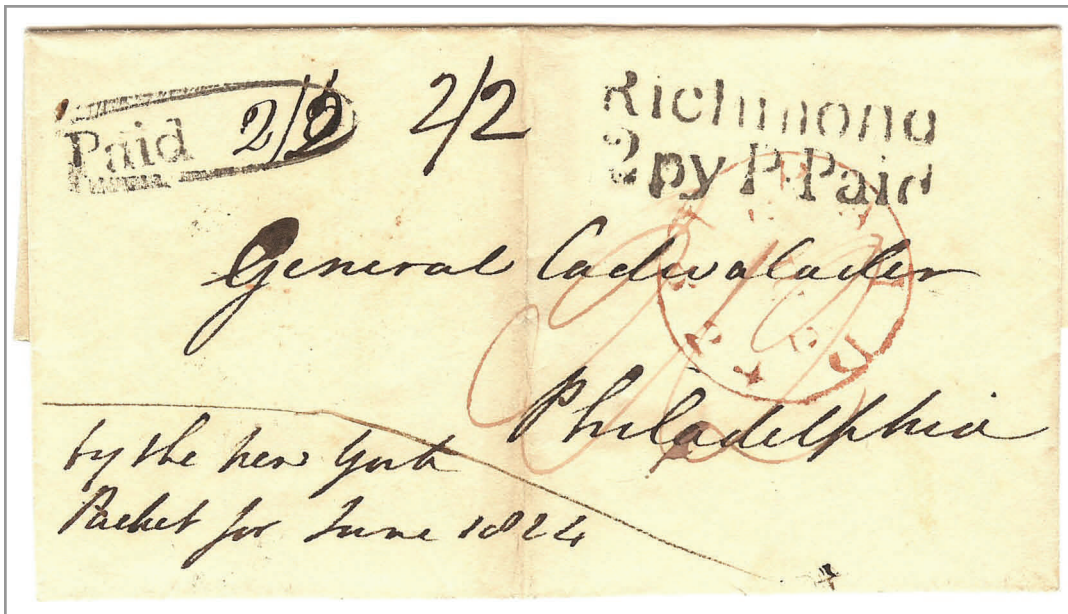 Paid 2/2 2/2
Richmond
2py P.Paid
General Cadwalader
Philadelphia
by the new York
Packet for June 1824